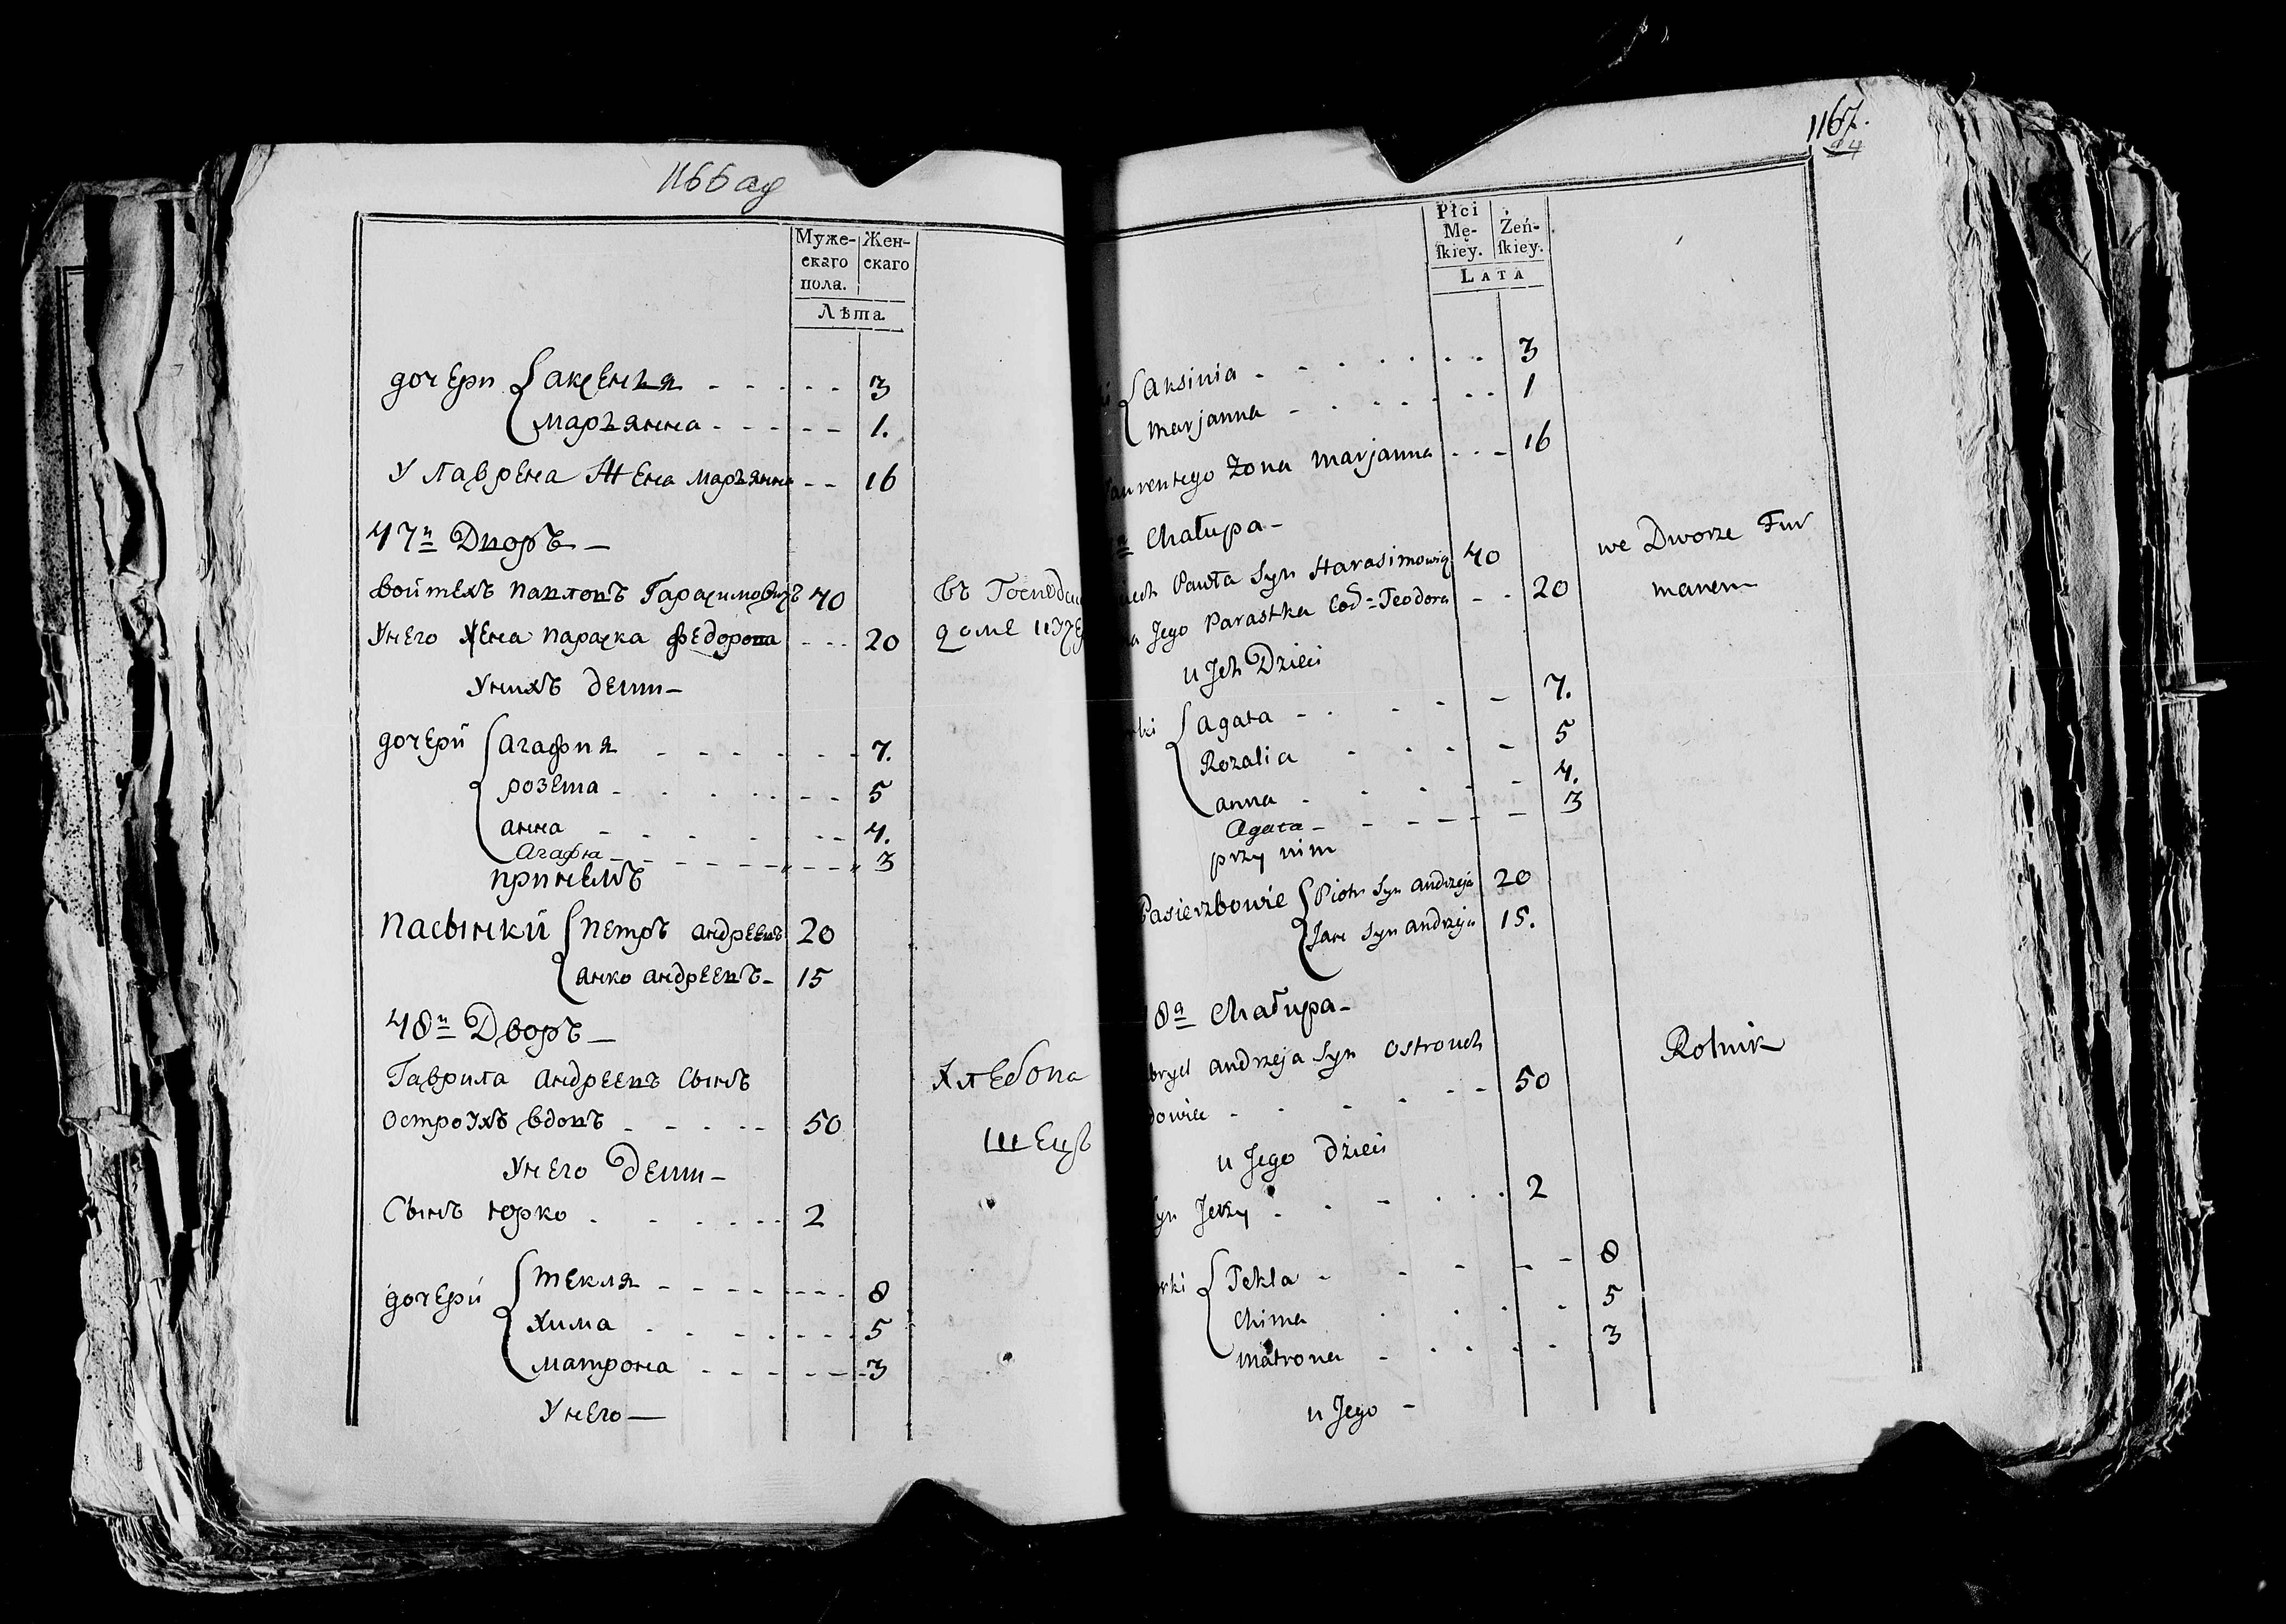 1166 об
Муже-
скаго
пола.
Жен-
скаго
Лѣта
дочери { аксенья - - - - - 3
марьянна - - - - - 1.
У Лаврена жена марьянна - - 16
47й Дворъ -
войтехъ павловъ Гарасимовичъ 40
въ Господск
У него жена параска федорова - - - 20
доме
У нихъ дети -
дочери { агафия - - - - - 7.
розета - - - - - 5
анна - - - - - 4.
Агафия - - - - - 3
При немъ
Пасынки { петръ андреевъ 20
янко андреевъ - 15
48й Дворъ -
Гаврила андреевъ сынъ
хлебопа
острохъ вдовъ - - - - - 50
шецъ
У него дети -
Сынъ юрко - - - - - 2
дочери { текля - - - - - 8
хима - - - - - 5
матрона - - - - - 3
У него -
1167.
Płci
Mę-
skiey.
Żeń-
skiey.
LATA
{ Aksinia - - - - - 3
Marjanna - - - - - 1
aurentego Żona Marjanna - - - 16
a Chałupa -
iech Pawła Syn Harasimowicz 40
we Dworze Fur
a Jego Parastka Cod= Teodora - - 20
manem
u Jch Dzieci
rki { Agata - - - - - 7.
Rozalia - - - - - 5
Anna - - - - - 4.
Agata - - - - - 3
przy nim
Pasierzbowie { Piotr Syn Andrzeja 20
Jan Syn Andrzeja 15.
8a Chałupa -
bryel Andrzeja Syn Ostrouch
Rolnik
dowiec - - - - - 50
u Jego Dzieci
yn Jerzy - - - - - 2
rki { Tekla - - - - - 8
Chima - - - - - 5
Matrona - - - - - 3
u Jego -